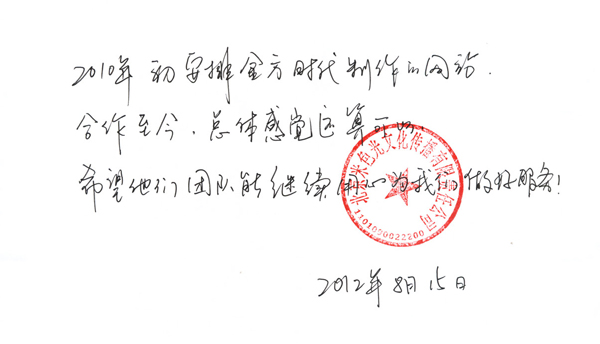 2010年初安排金方时代制作的网站.
合作至今、总体感觉还算可以.
希望他们团队能继续用心为我们做好服务!
北京米色光文化传播有限责任公司
1101050022800
2012年8月15日